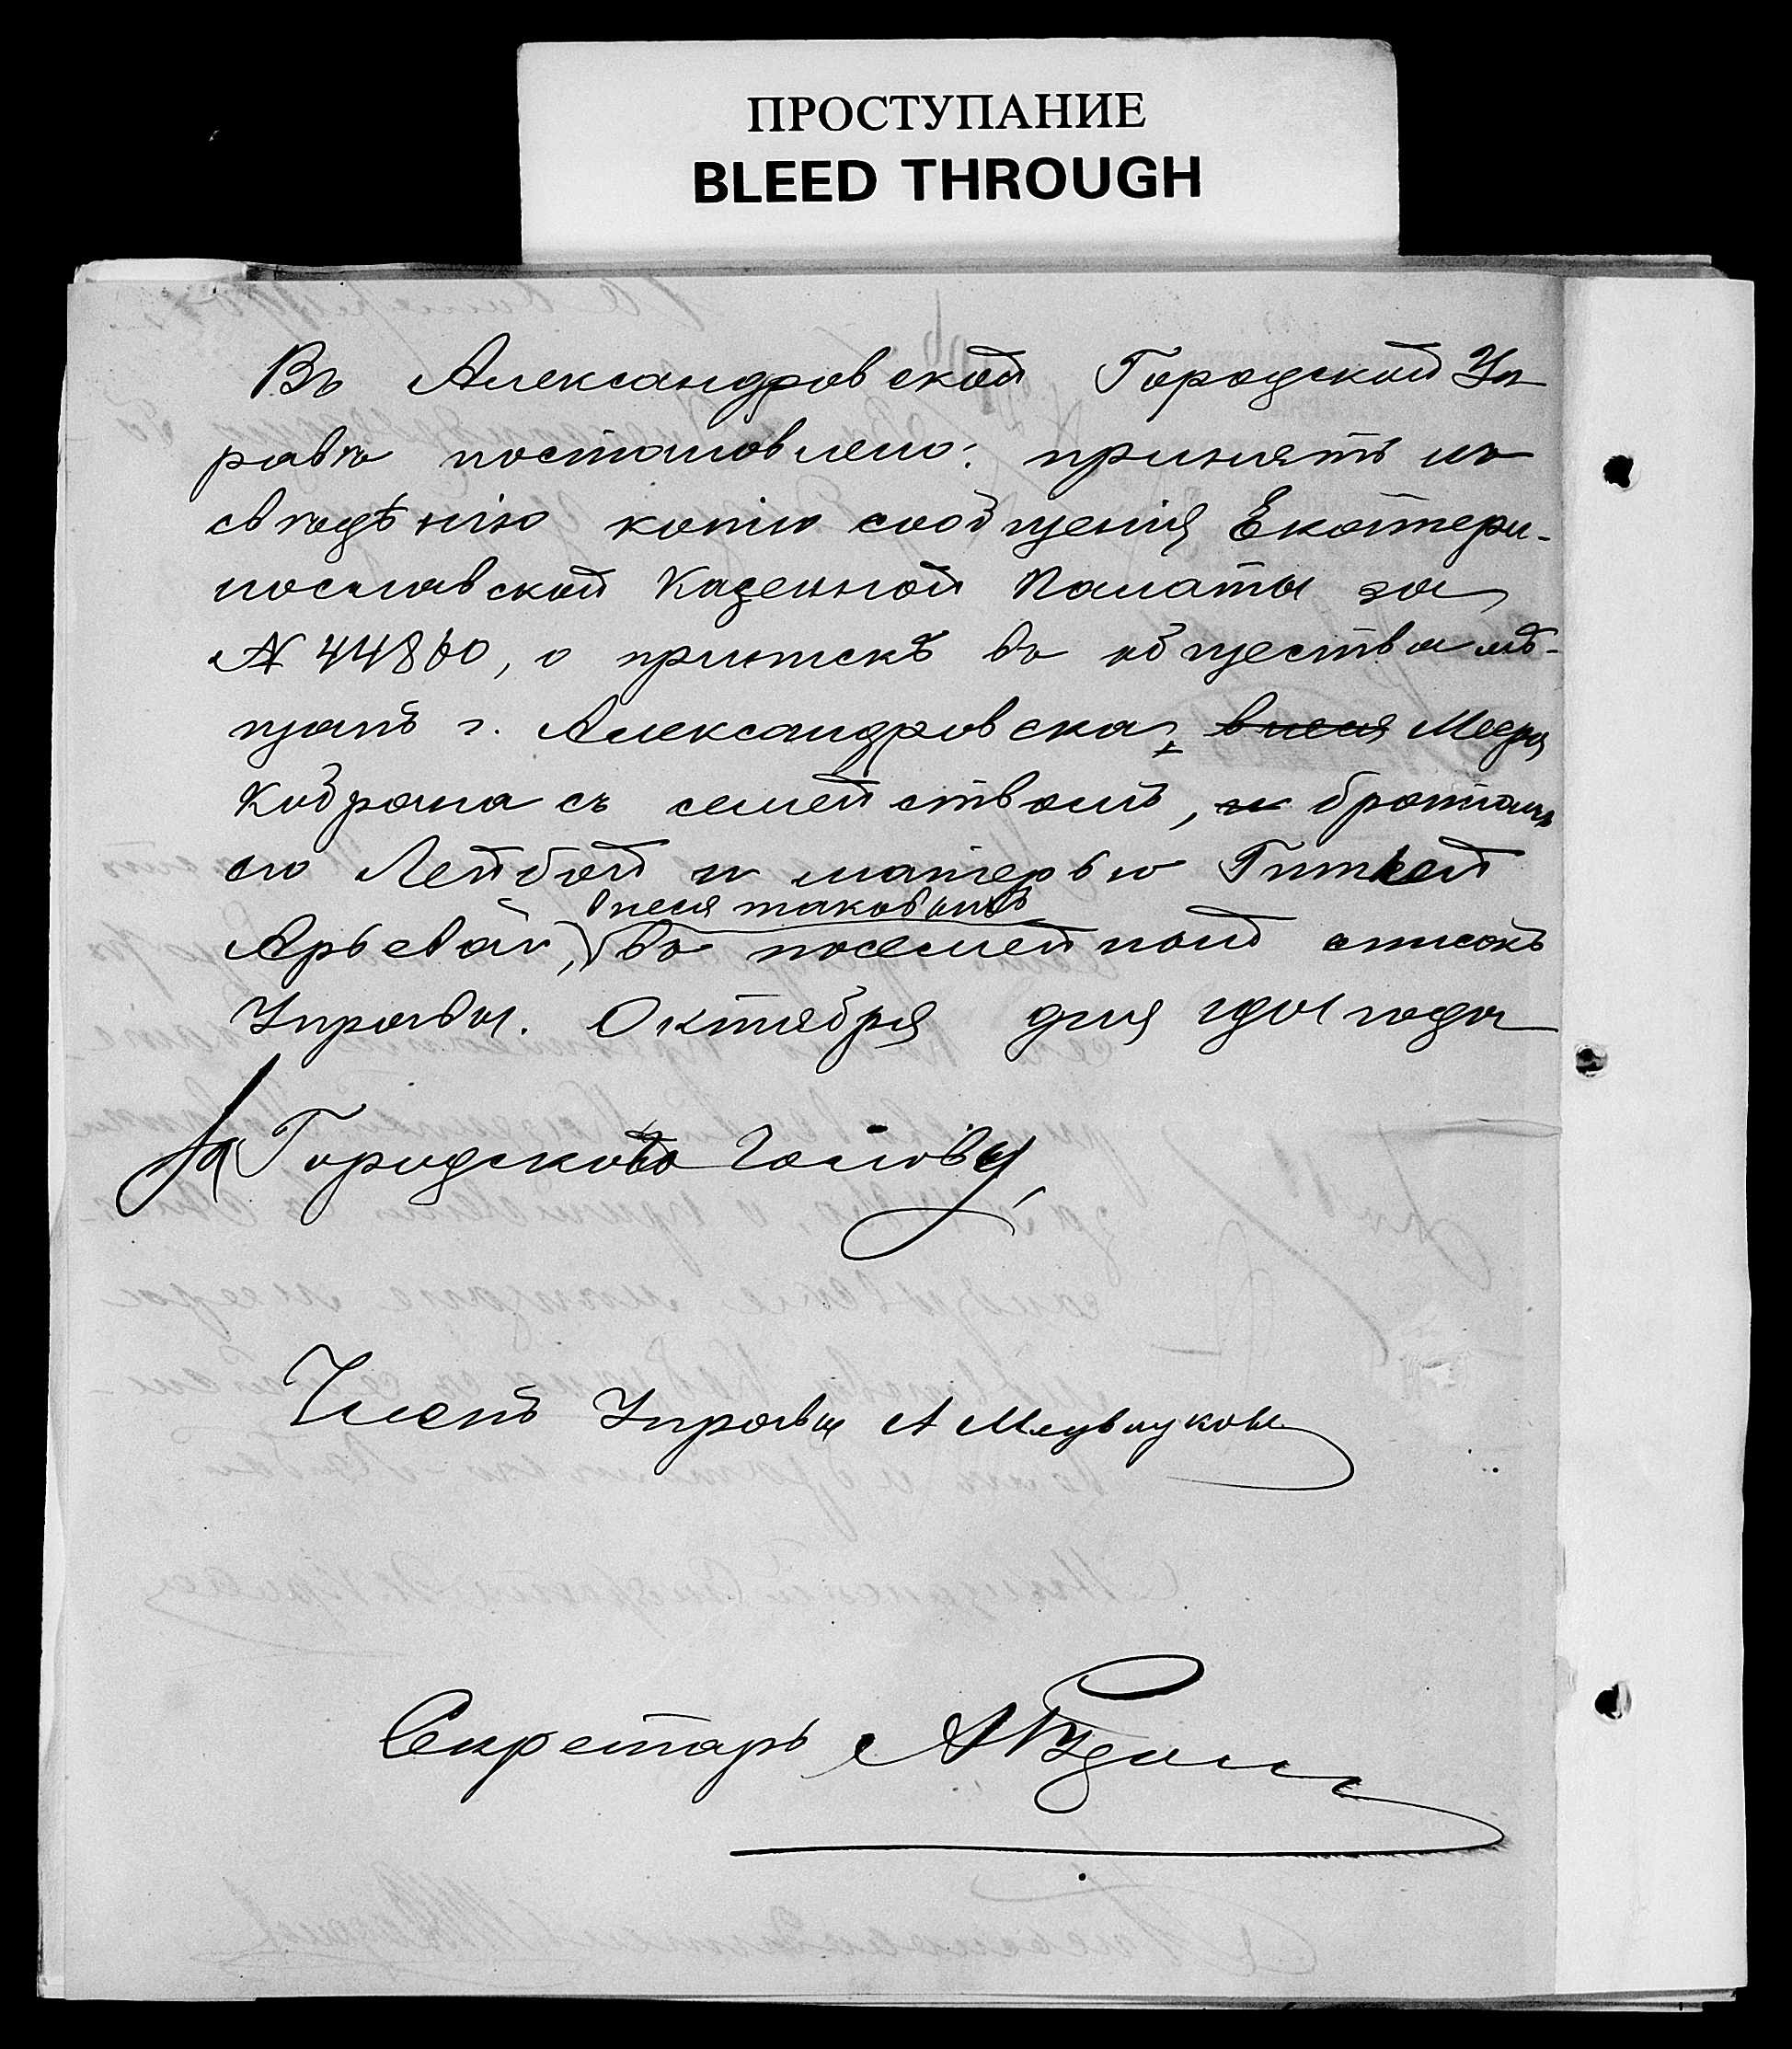 ПРОСТУПАНИЕ
BLEED THROUGH
Въ Александровской Городской Уп
равѣ постановлено: принять къ
свѣдѣнію копію сообщенія Екатери-
нославской Казенной Палаты за
№ 44860, о припискѣ въ общества мѣ-
щанъ г. Александровска, внеся Меера
Кобрана съ семействомъ, и братомъ
его Лейбой и матерью Гиткой
внеся таковыхъ
Арьевой, въ посемейный списокъ
Управы. Октября дня 1901 года
За Городского Голову,
Членъ Управы А
Секретарь А